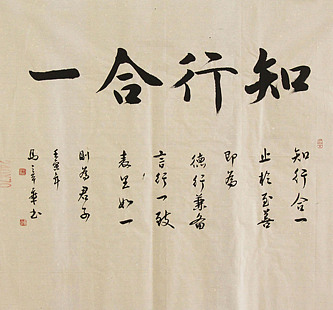 知行合一
知行合一
止於至善
即為
德行兼備
言行一致
表里如一
則為君子
壬寅年